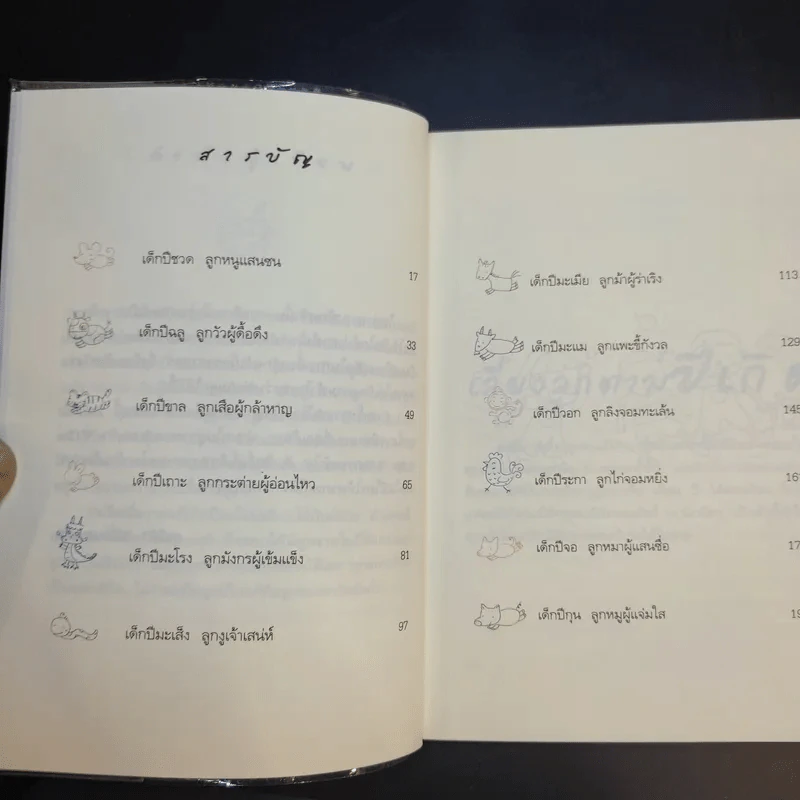 สารบัญ
เด็กปีชวด ลูกหนูแสนซน 17
เด็กปีฉลู ลูกวัวผู้ดื้อดึง 33
เด็กปีขาล ลูกเสือผู้กล้าหาญ 49
เด็กปีเถาะ ลูกกระต่ายผู้อ่อนไหว 65
เด็กปีมะโรง ลูกมังกรผู้เข้มแข็ง 81
เด็กปีมะเส็ง ลูกงูเจ้าเสน่ห์ 97
เด็กปีมะเมีย ลูกม้าผู้ร่าเริง 113
เด็กปีมะแม ลูกแพะขี้กังวล 129
เด็กปีวอก ลูกลิงจอมทะเล้น 145
เด็กปีระกา ลูกไก่จอมหยิ่ง
เด็กปีจอ ลูกหมาผู้แสนซื่อ
เด็กปีกุน ลูกหมูผู้แจ่มใส